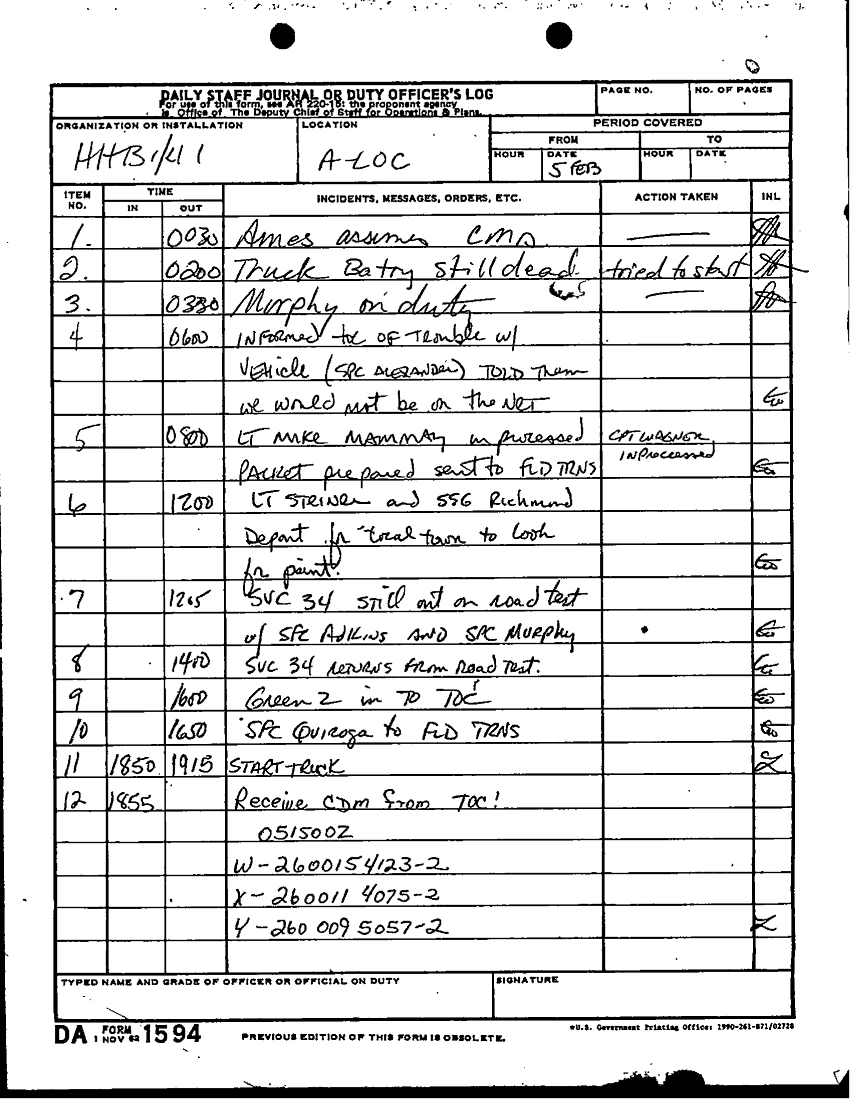 DAILY STAFF JOURNAL OR DUTY OFFICER'S LOG
For use of this form, see AR 220-15; the proponent agency
is Office of The Deputy Chief of Staff for Operations & Plans.
PAGE NO.
NO. OF PAGES
ORGANIZATION OR INSTALLATION
HHB 1/41
LOCATION
A-LOC
PERIOD COVERED
FROM TO
HOUR DATE HOUR DATE
5 FEB
ITEM NO. TIME INCIDENTS, MESSAGES, ORDERS, ETC. ACTION TAKEN INL
IN OUT
1. 0030 Ames assumes CMD
2. 0200 Truck Batry still dead tried to start
3. 0330 Murphy on duty
4 0600 INFormed toc OF Trouble w/
VEHicle (SPC ALEXANDER) TOLD Them
we would not be on the NET
5 0800 LT MIKE MAMMAY in processed CPT WAGNER
INProcessed
PACKET prepared sent to FLD TRNS
6 1200 LT STRINER and SSG Richmond
Depart for local town to look
for paint.
7 1205 SVC 34 still out on road test
w/ SFC ADKINS AND SPC MURPHY
8 1400 SVC 34 RETURNS FROM ROAD TEST.
9 1600 Green 2 in TO TOC
10 1650 SFC QUIROGA to FLD TRNS
11 1850 1915 START TRUCK
12 1855 Receive CDM from TOC!
051500Z
W-2600154123-2
X-260011 4075-2
Y-260 009 5057-2
TYPED NAME AND GRADE OF OFFICER OR OFFICIAL ON DUTY
SIGNATURE
DA FORM 1 NOV 62 1594
PREVIOUS EDITION OF THIS FORM IS OBSOLETE.
*U.S. Government Printing Office: 1990-261-871/02728